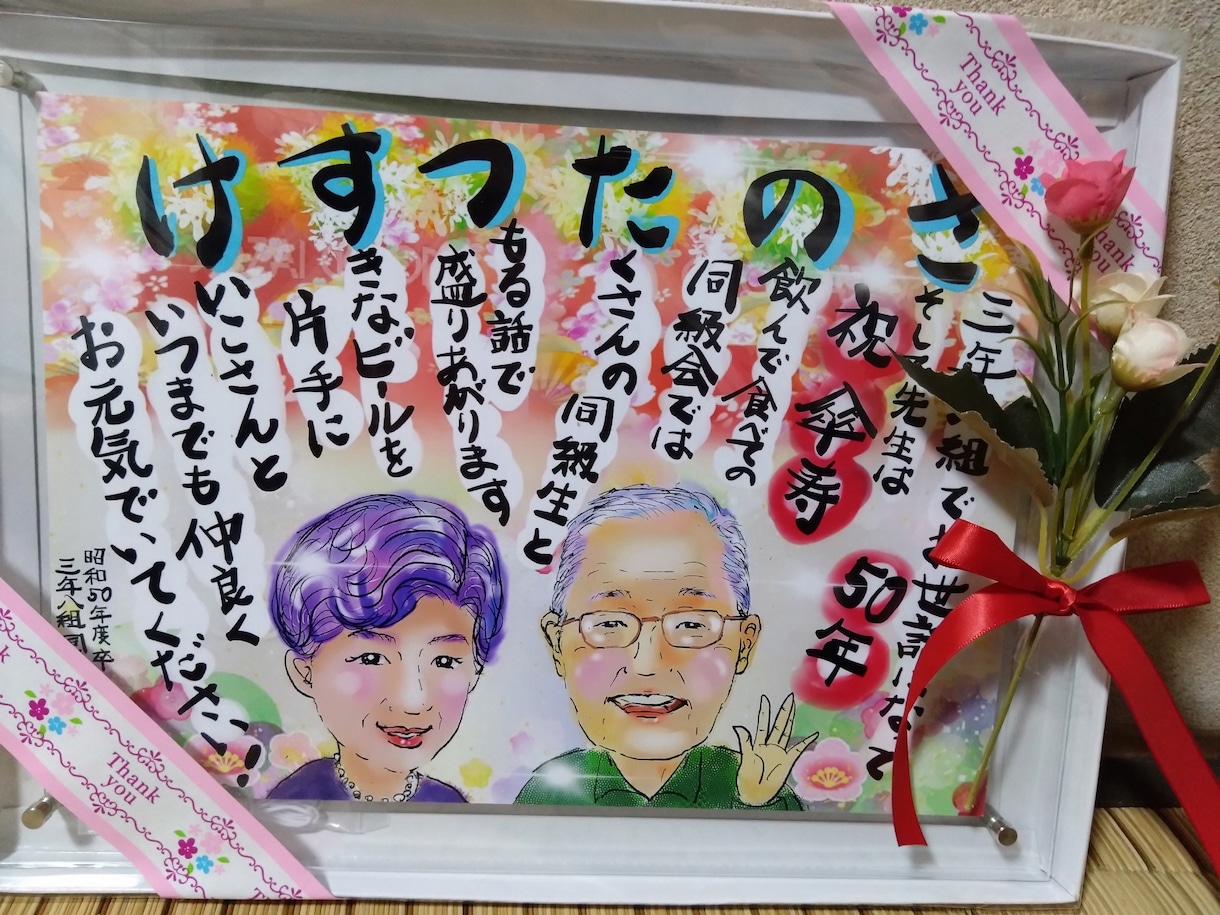 さのたつすけ
三年 組でお世話になって
そして先生は
祝 傘寿 50年
飲んで食べての
同級会では
くさんの同級生と
もる話で
盛りあがります
きなビールを
片手に
いこさんと
いつまでも仲良く
お元気でいてください!
昭和50年度卒
三年八組
Thank you
Thank you
Thank you